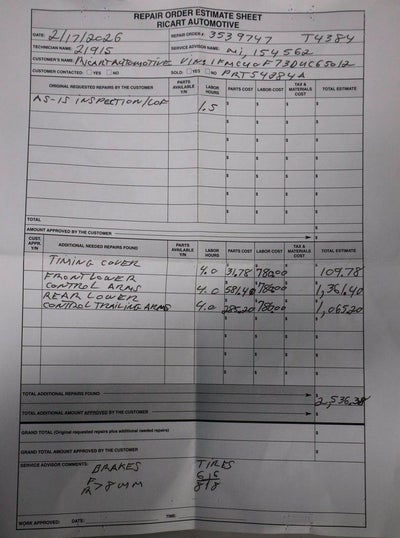 REPAIR ORDER ESTIMATE SHEET
RICART AUTOMOTIVE
DATE: 2/17/2026 REPAIR ORDER #: 3539747 T4384
TECHNICIAN NAME: 21915 SERVICE ADVISOR NAME: mi, 154562
CUSTOMER'S NAME: Ricart Automotive VIN: 1FMCU0F73DUC65012
CUSTOMER CONTACTED: YES NO SOLD: YES NO PRT54384A
ORIGINAL REQUESTED REPAIRS BY THE CUSTOMER PARTS AVAILABLE Y/N LABOR HOURS PARTS COST LABOR COST TAX & MATERIALS COST TOTAL ESTIMATE
AS-IS INSPECTION/LOF 1.5 $ $ $ $
$ $ $ $
$ $ $ $
$ $ $ $
$ $ $ $
$ $ $ $
TOTAL $
AMOUNT APPROVED BY THE CUSTOMER $
CUST. APPR. Y/N ADDITIONAL NEEDED REPAIRS FOUND PARTS AVAILABLE Y/N LABOR HOURS PARTS COST LABOR COST TAX & MATERIALS COST TOTAL ESTIMATE
TIMING COVER 4.0 $ 31.78 $ 780.00 $ $ 109.78
FRONT LOWER
CONTROL ARMS 4.0 $ 581.40 $ 780.00 $ $ 1,361.40
REAR LOWER
CONTROL TRAILING ARMS 4.0 $ 285.20 $ 780.00 $ $ 1,065.20
$ $ $ $
$ $ $ $
$ $ $ $
$ $ $ $
TOTAL ADDITIONAL REPAIRS FOUND $ 2,536.38
TOTAL ADDITIONAL AMOUNT APPROVED BY THE CUSTOMER $
GRAND TOTAL (Original requested repairs plus additional needed repairs) $
GRAND TOTAL AMOUNT APPROVED BY THE CUSTOMER $
SERVICE ADVISOR COMMENTS: BRAKES TIRES
F 6|6
R >8mm 8|8
WORK APPROVED: DATE: TIME: